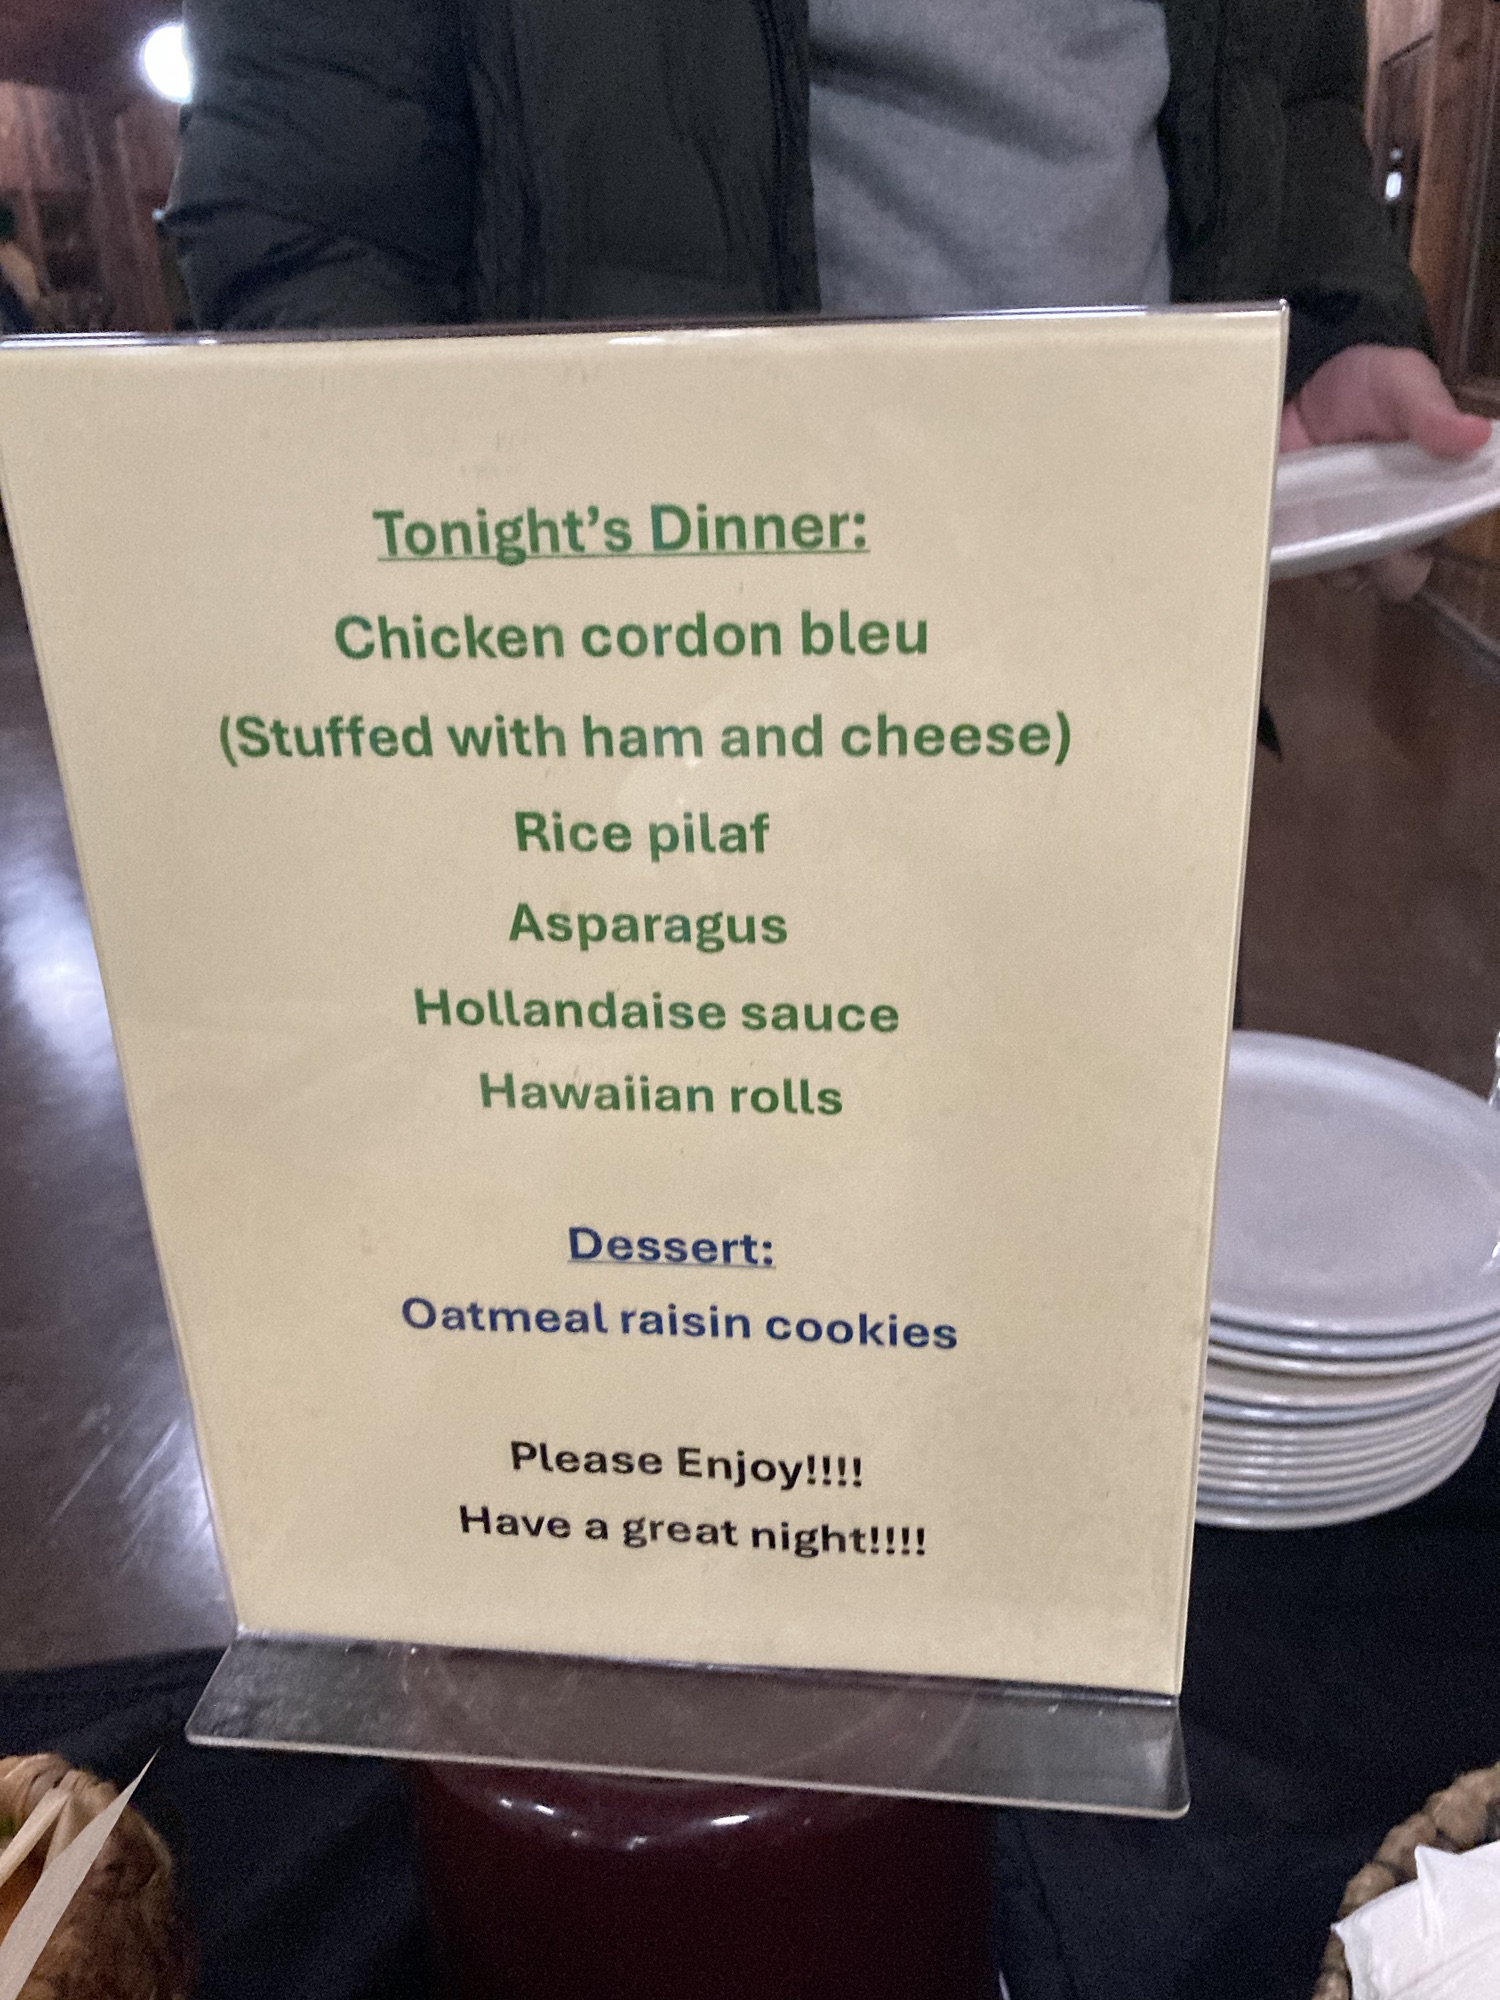 Tonight's Dinner:
Chicken cordon bleu
(Stuffed with ham and cheese)
Rice pilaf
Asparagus
Hollandaise sauce
Hawaiian rolls
Dessert:
Oatmeal raisin cookies
Please Enjoy!!!!
Have a great night!!!!